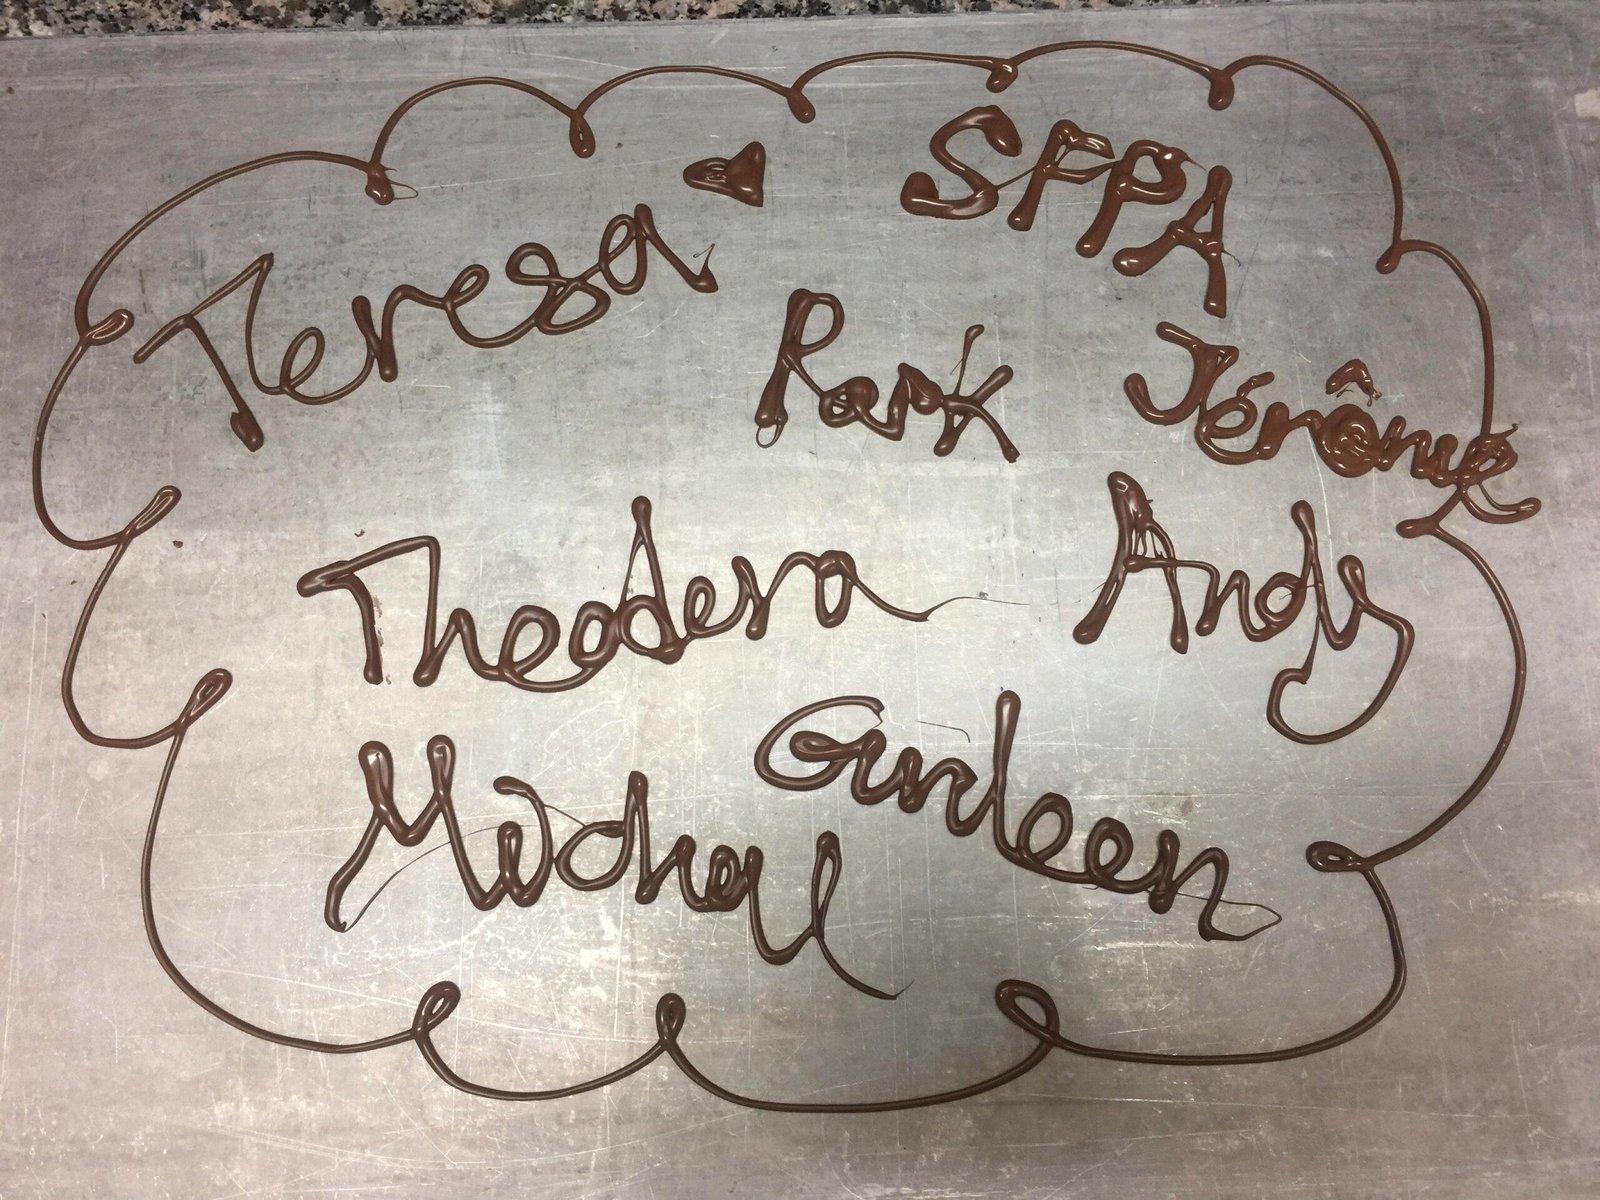 Teresa
SFPA
Rark
Jérôme
Theodera
Andy
Gurleen
Michael